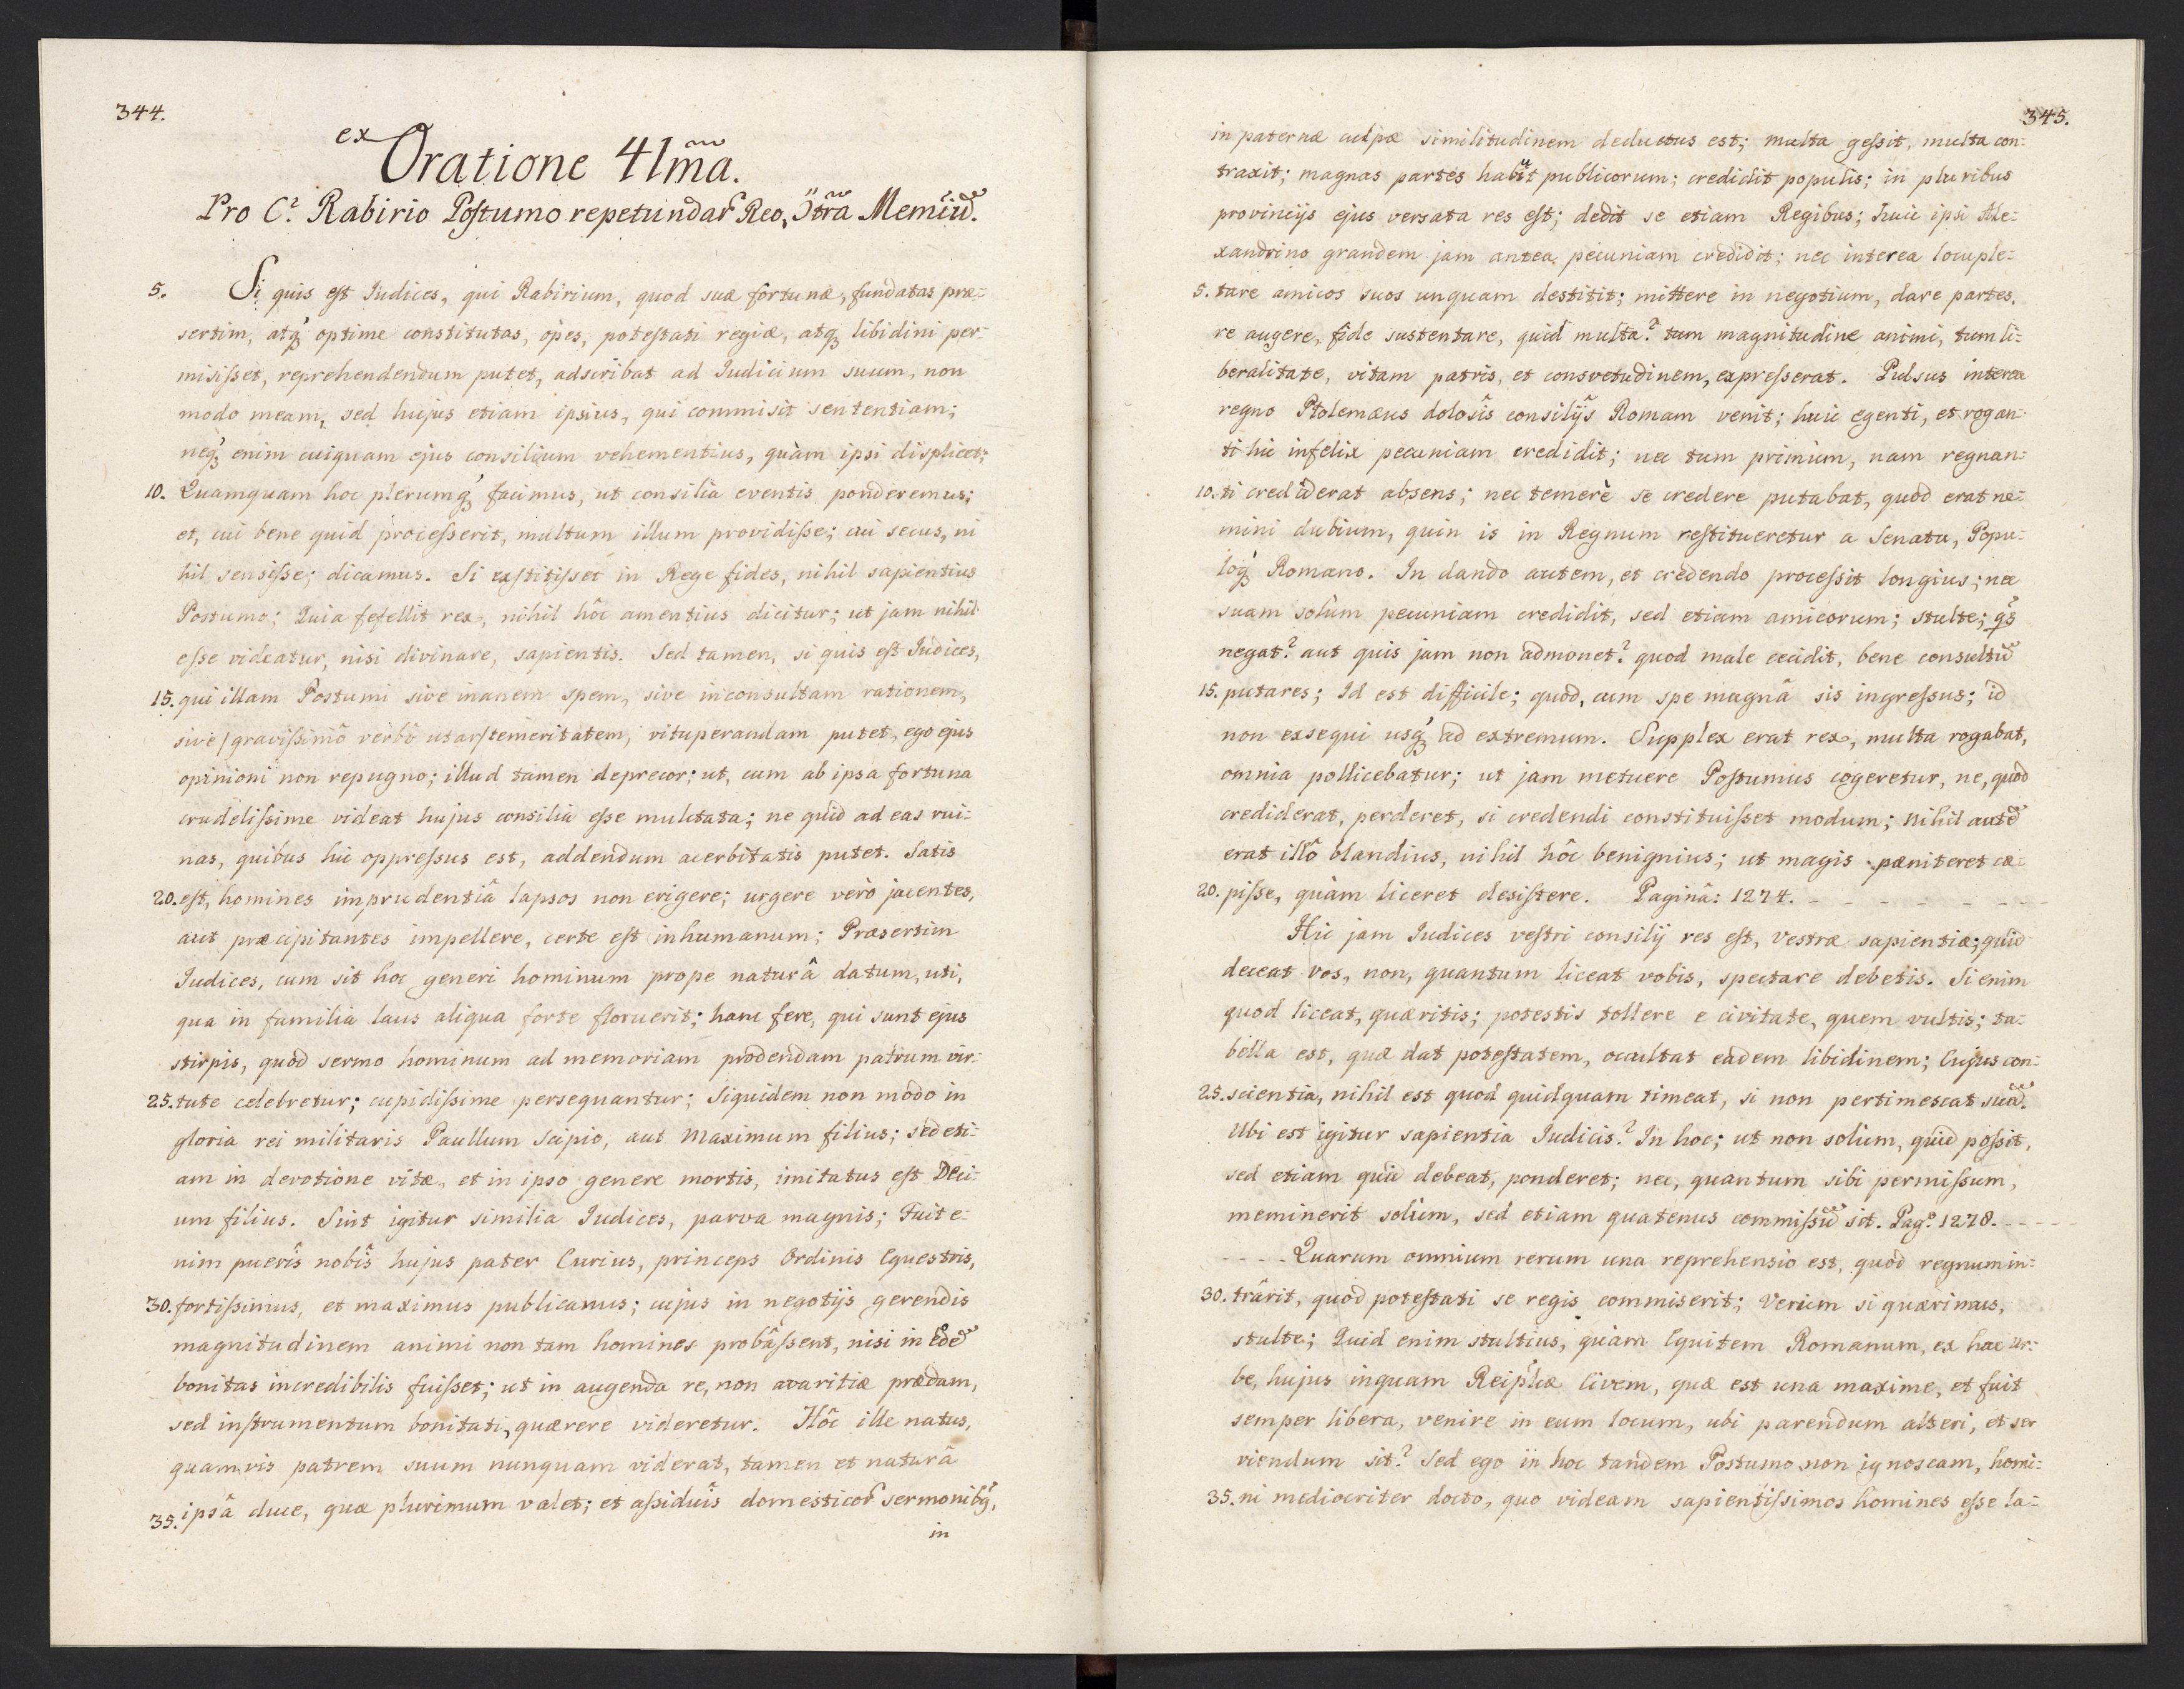 344.
ex
Oratione 41m̃a.
Pro C? Rabirio Postumo repetundar̃ Reo, Ɔ̈tr̃a Memiũ.
5. Si quis est Iudices, qui Rabirium, quod suæ fortunæ, fundatas præ=
sertim, atq́ optime constitutas, opes, potestati regiæ, atq́ libidini per=
misisset, reprehendendum putet, adscribat ad Iudicium suum, non
modo meam, sed hujus etiam ipsius, qui commisit sententiam;
neq́ enim cuiquam ejus consilium vehementius, quàm ipsi displicet;
10. Quamquam hoc plerumq́ facimus, ut consilia eventis ponderemus;
et, cui bene quid processerit, multum illum providisse; cui secus, ni
hil sensisse; dicamus. Si exstitisset in Rege fides, nihil sapientius
Postumo; Quia fefellit rex, nihil hôc amentius dicitur; ut jam nihil
esse videatur, nisi divinare, sapientis. Sed tamen, si quis est Iudices,
15. qui illam Postumi sive inanem spem, sive inconsultam rationem,
sive / gravissimô verbô utar / temeritatem, vituperandam putet, ego ejus
opinioni non repugno; illud tamen deprecor; ut, cum ab ipsa fortuna
crudelissime videat hujus consilia esse mulctata; ne quid ad eas rui=
nas, quibus hic oppressus est, addendum acerbitatis putet. Satis
20. est, homines imprudentiâ lapsos non erigere; urgere verò jacentes,
aut præcipitantes impellere, certe est inhumanum; Præsertim
Iudices, cum sit hoc generi hominum prope naturâ datum, uti,
qua in familia laus aliqua forte floruerit; hanc fere, qui sunt ejus
stirpis, quod sermo hominum ad memoriam prodendam patrum vir=
25. tute celebretur; cupidissime persequantur; Siquidem non modo in
gloria rei militaris Paullum Scipio, aut Maximum filius; sed eti=
am in devotione vitæ, et in ipso genere mortis, imitatus est Deci=
um filius. Sint igitur similia Iudices, parva magnis; Fuit e=
nim puerîs nobîs hujus pater Curius, princeps Ordinis Equestris,
30. fortissimus, et maximus publicanus; cujus in negotijs gerendis
magnitudinem animi non tam homines probâssent, nisi in Eodẽ
bonitas incredibilis fuisset; ut in augenda re, non avaritiæ prædam,
sed instrumentum bonitati, quærere videretur. Hôc ille natus,
quamvis patrem suum nunquam viderat, tamen et naturâ
35. ipsâ duce, quæ plurimum valet; et assiduîs domesticor̃ sermonibq́,
in
345.
in paternæ culpæ similitudinem deductus est; multa gessit, multa con=
traxit; magnas partes habuit publicorum; credidit populis; in pluribus
provincijs ejus versata res est; dedit se etiam Regibus; huic ipsi Ale=
xandrino grandem jam antea pecuniam credidit; nec interea locuple=
5. tare amicos suos unquam destitit; mittere in negotium, dare partes,
re augere, fide sustentare, quid multa? tum magnitudine animi, tum li=
beralitate, vitam patris, et consvetudinem, expresserat. Pulsus interea
regno Ptolemæus dolosîs consilijs Romam venit; huic egenti, et rogan=
ti hic infelix pecuniam credidit; nec tum primùm, nam regnan=
10. ti crediderat absens; nec temerè se credere putabat, quod erat ne=
mini dubium, quin is in Regnum restitueretur a Senatu, Popu=
loq́ Romano. In dando autem, et credendo processit longius; nec
suam solùm pecuniam credidit, sed etiam amicorum; stulte; qs̃
negat? aut quis jam non admonet? quod male cecidit, bene consultũ
15. putares; Id est difficile; quod, cum spe magnâ sis ingressus; id
non exsequi usq́ ad extremum. Supplex erat rex, multa rogabat,
omnia pollicebatur; ut jam metuere Postumus cogeretur, ne, quod
crediderat, perderet, si credendi constituisset modum; Nihil autẽ
erat illô blandius, nihil hôc benignius; ut magis pæniteret cæ=
20. pisse, quàm liceret desistere. Paginâ: 1274. - - - - - -
Hic jam Iudices vestri consilij res est, vestræ sapientiæ; quid
deceat vos, non, quantum liceat vobis, spectare debetis. Si enim
quod liceat, quæritis; potestis tollere e civitate, quem vultis; ta=
bella est, quæ dat potestatem, occultat eadem libidinem; Cujus con=
25. scientia, nihil est quod quidquam timeat, si non pertimescat suã.
Ubi est igitur sapientia Iudicis? In hoc; ut non solùm, quid possit,
sed etiam quid debeat, ponderet; nec, quantum sibi permissum,
meminerit solùm, sed etiam quatenus commissũ sit. Pag.º 1278. - - - -
- - - - Quarum omnium rerum una reprehensio est, quod regnum in=
30. trârit, quod potestati se regis commiserit; Verùm si quærimus,
stulte; Quid enim stultius, quàm Equitem Romanum, ex hac ur=
be, hujus inquam Reip̃læ Civem, quæ est una maxime, et fuit
semper libera, venire in eum locum, ubi parendum alteri, et ser
viendum sit? Sed ego in hoc tandem Postumo non ignoscam, homi=
35. ni mediocriter docto, quo videam sapientissimos homines esse la=